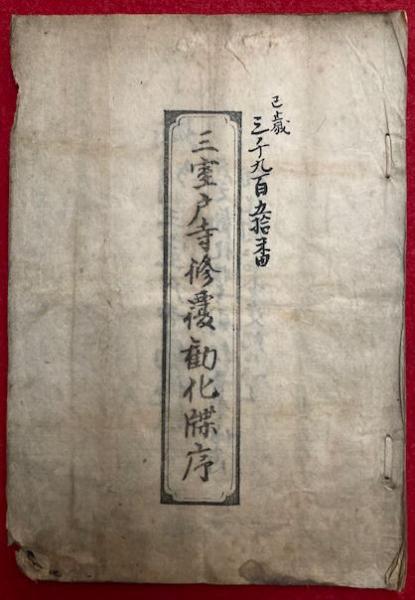 己歳
三千九百五拾番
三室戸寺修覆勧化牒序